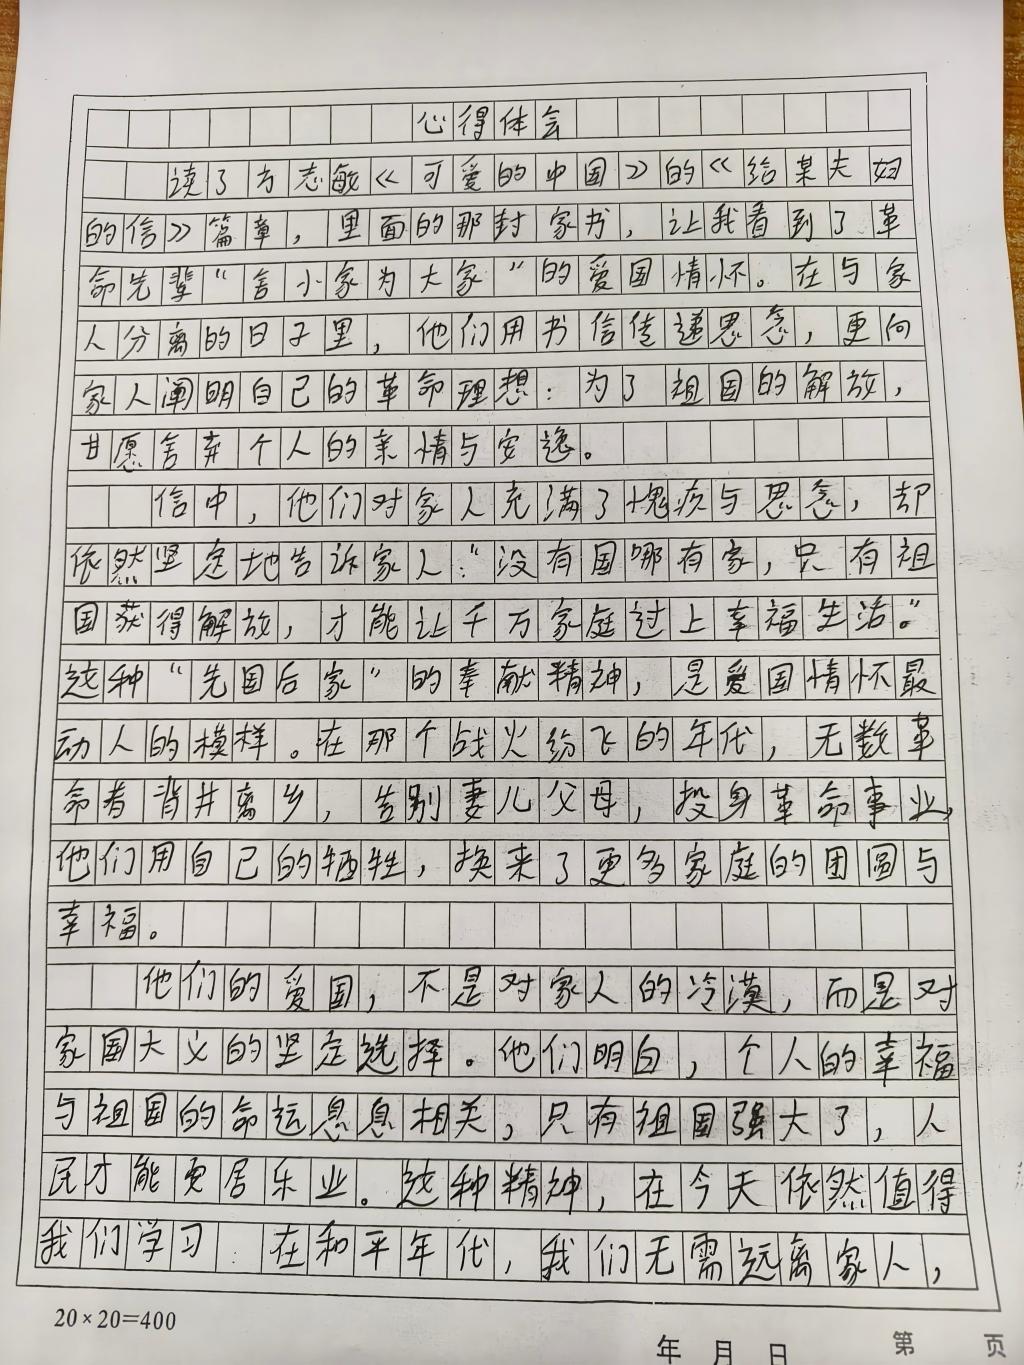 心得体会
读了方志敏《可爱的中国》的《给某夫妇
的信》篇章，里面的那封家书，让我看到了革
命先辈“舍小家为大家”的爱国情怀。在与家
人分离的日子里，他们用书信传递思念，更向
家人阐明自己的革命理想：为了祖国的解放，
甘愿舍弃个人的亲情与安逸。
信中，他们对家人充满了愧疚与思念，却
依然坚定地告诉家人：“没有国哪有家，只有祖
国获得解放，才能让千万家庭过上幸福生活。”
这种“先国后家”的奉献精神，是爱国情怀最
动人的模样。在那个战火纷飞的年代，无数革
命者背井离乡，告别妻儿父母，投身革命事业，
他们用自己的牺牲，换来了更多家庭的团圆与
幸福。
他们的爱国，不是对家人的冷漠，而是对
家国大义的坚定选择。他们明白，个人的幸福
与祖国的命运息息相关，只有祖国强大了，人
民才能更居乐业。这种精神，在今天依然值得
我们学习：在和平年代，我们无需远离家人，
20×20=400
年 月 日
第 页